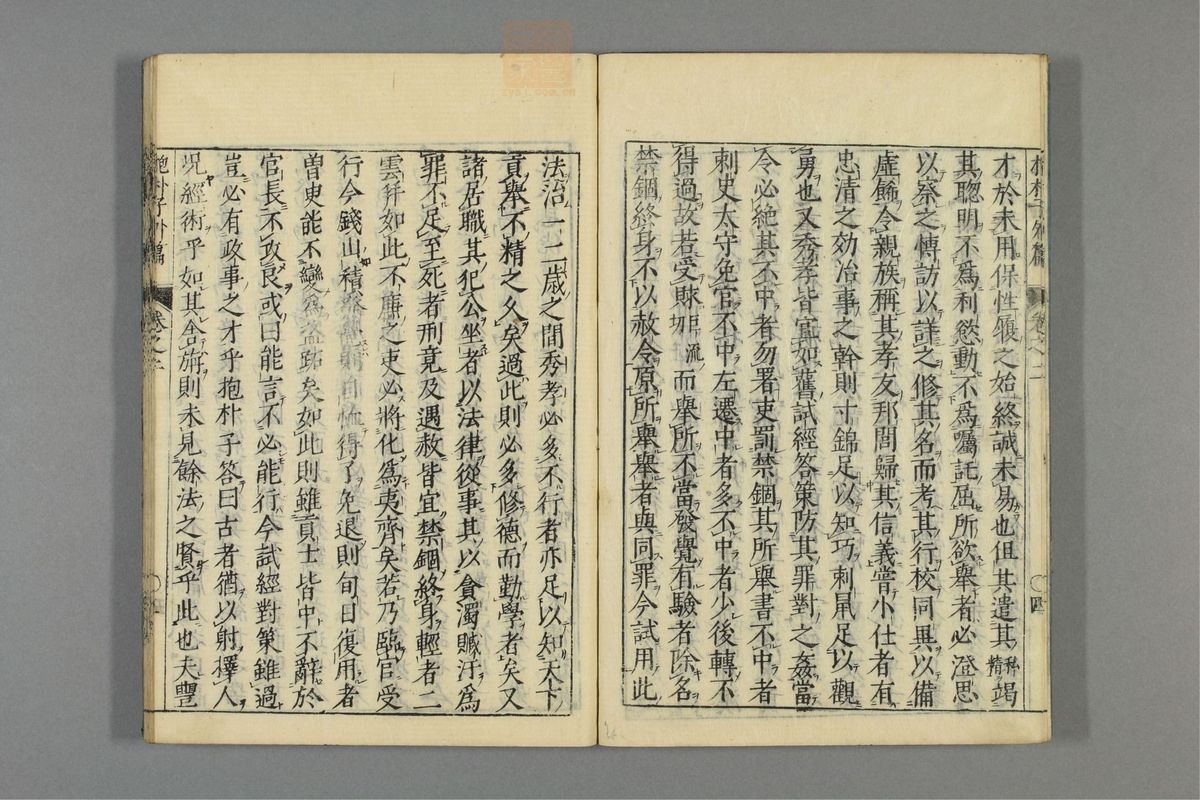 抱朴子外篇 卷之二 ○四
才於未用保性履之始終誠未易也但其遣其私竭精
其聰明不爲利慾動不爲囑託屈所欲舉者必澄思
以察之博訪以詳之修其名而考其行校同異以備
虛飾令親族稱其孝友邦閭歸其信義嘗小仕者有
忠清之効治事之幹則寸錦足以知巧刺鼠足以觀
勇也又秀孝皆宜如舊試經答策防其罪對之姦當
令必絕其不中者勿署吏罰禁錮其所舉書不中者
刺史太守免官不中左遷中者多不中者少後轉不
得過故若受賕而舉所不當發覺有驗者除名
禁錮終身不以赦令原所舉舉者與同罪今試用此
法治一二歲之間秀孝必多不行者亦足以知天下
貢舉不精之久矣過此則必多修德而勤學者矣又
諸居職其犯公坐者以法律從事其以貪濁贓汙爲
罪不足至死者刑竟及遇赦皆宜禁錮終身輕者二
十年如此不廉之吏必將化爲夷齊矣若乃臨官受
行今錢山積得了免退則旬日復用者
曾史能不變爲盜跖矣如此則雖貢士皆中不辭於
官長不攻良或曰能言不必能行今試經對策雖過
豈必有政事之才乎抱朴子答曰古者猶以射擇人
況經術乎如其舍旃則未見餘法之賢乎此也夫豐
抱朴子外篇 卷之二